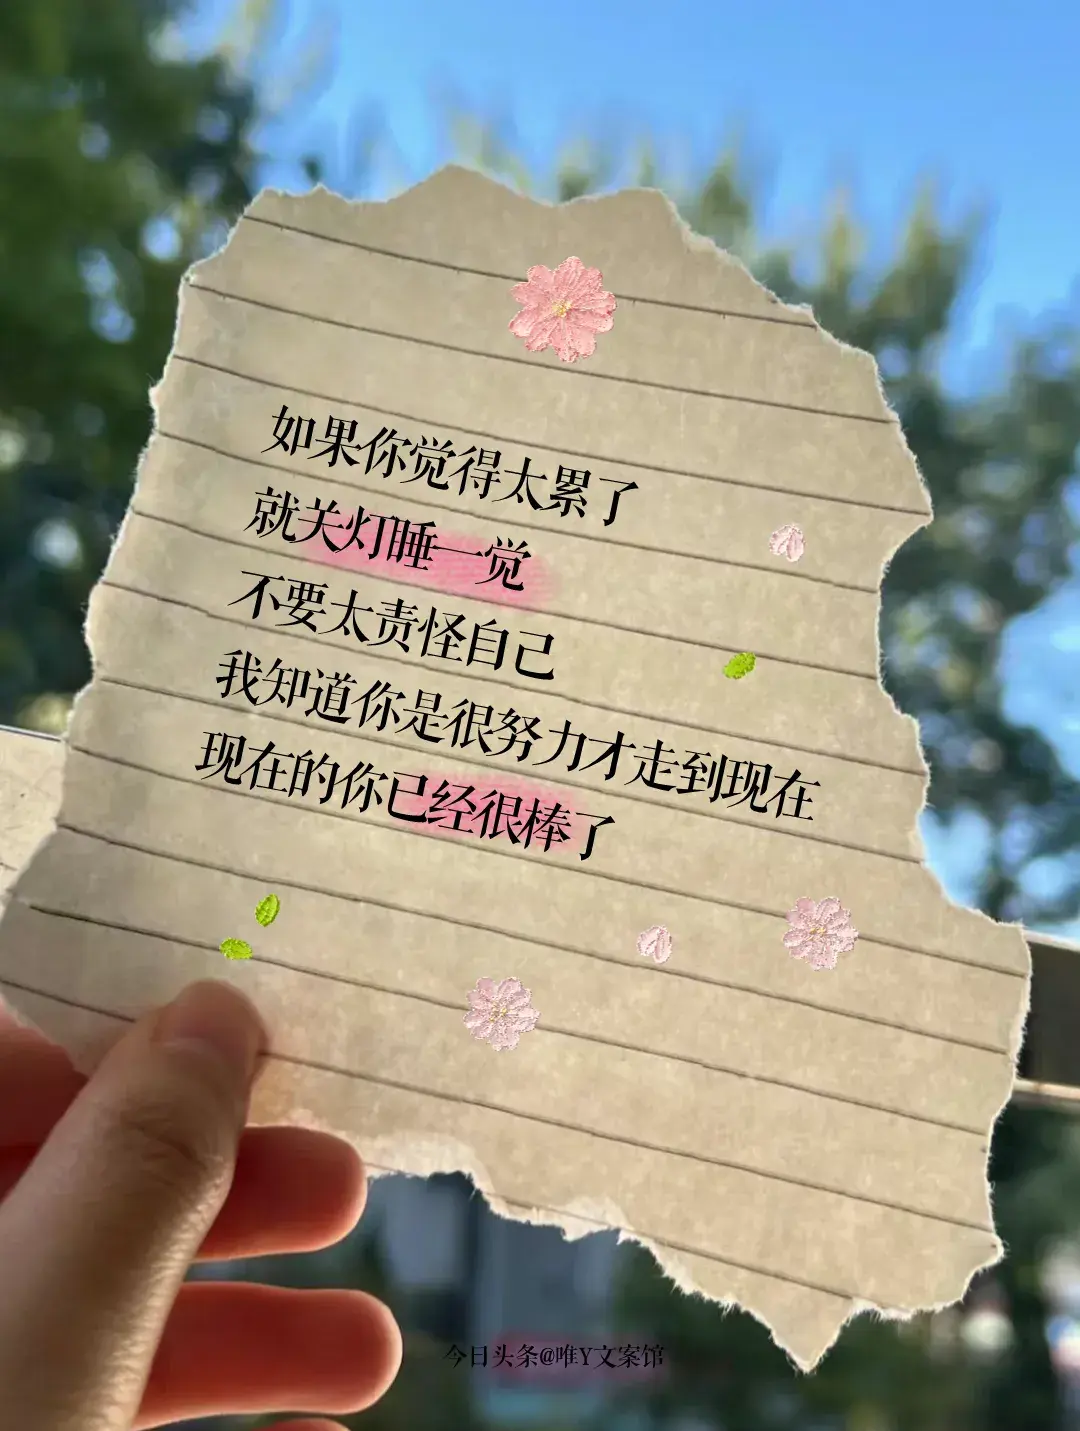 如果你觉得太累了
就关灯睡一觉
不要太责怪自己
我知道你是很努力才走到现在
现在的你已经很棒了
今日头条@唯Y文案馆